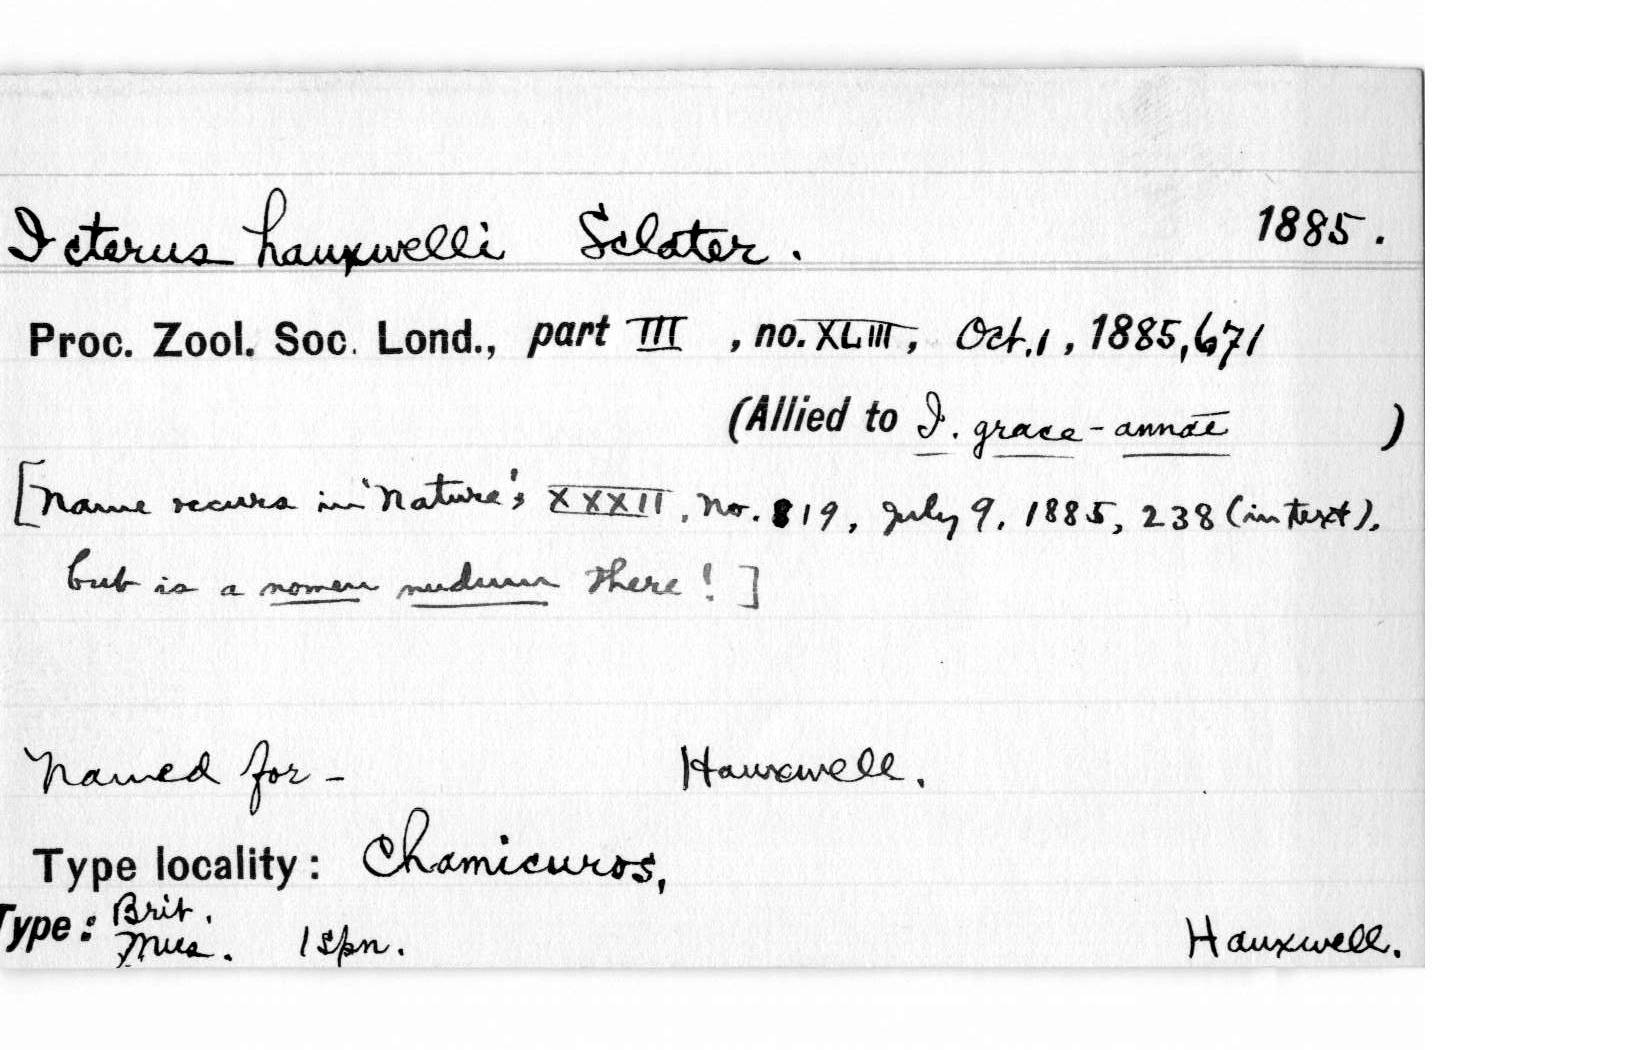 Icterus hauxwelli Sclater. 1885.
Proc. Zool. Soc. Lond., part III, no. XLIII, Oct. 1, 1885, 671
(Allied to I. grace-annae)
[Name recurs in 'Nature', XXXII, No. 819, July 9, 1885, 238 (in text),
but is a nomen nudum there!]
Named for - Hauxwell.
Type locality: Chamicuros,
Type: Brit. Mus. 1 spn. Hauxwell.